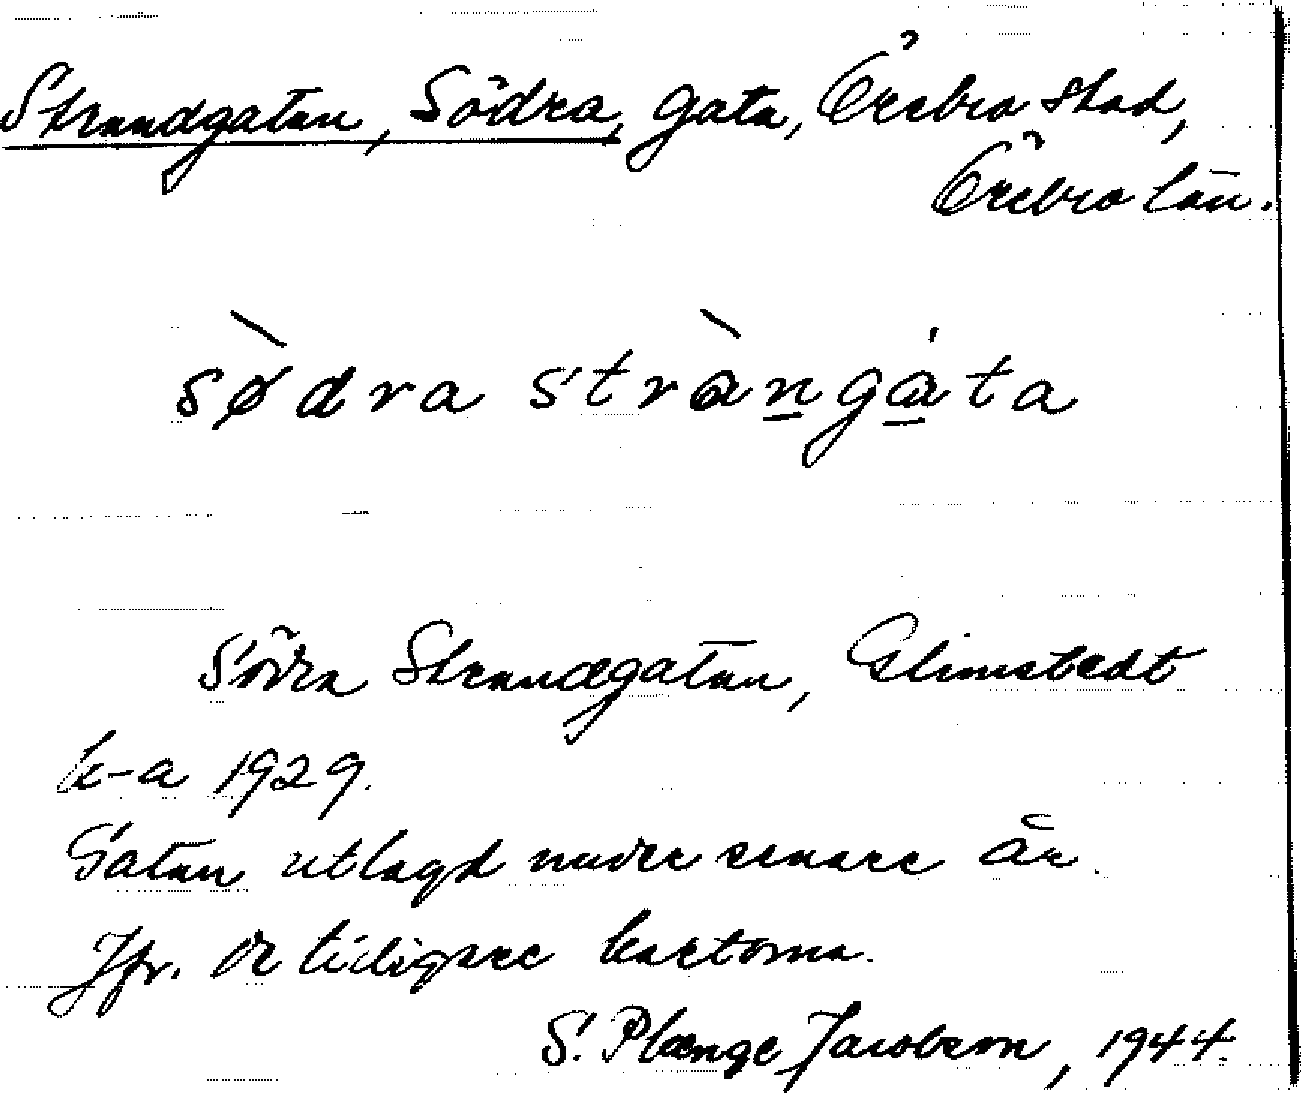 Strandgatan, Södra, gata, Örebro stad,
Örebro län.
sø̀dra stràn̲gá̲ta
Södra Strandgatan, Glimstedt
k-a 1929.
Gatan utlagd under senare år.
Jfr. de tidigare kartorna.
S. Plænge Jacobson, 1944.